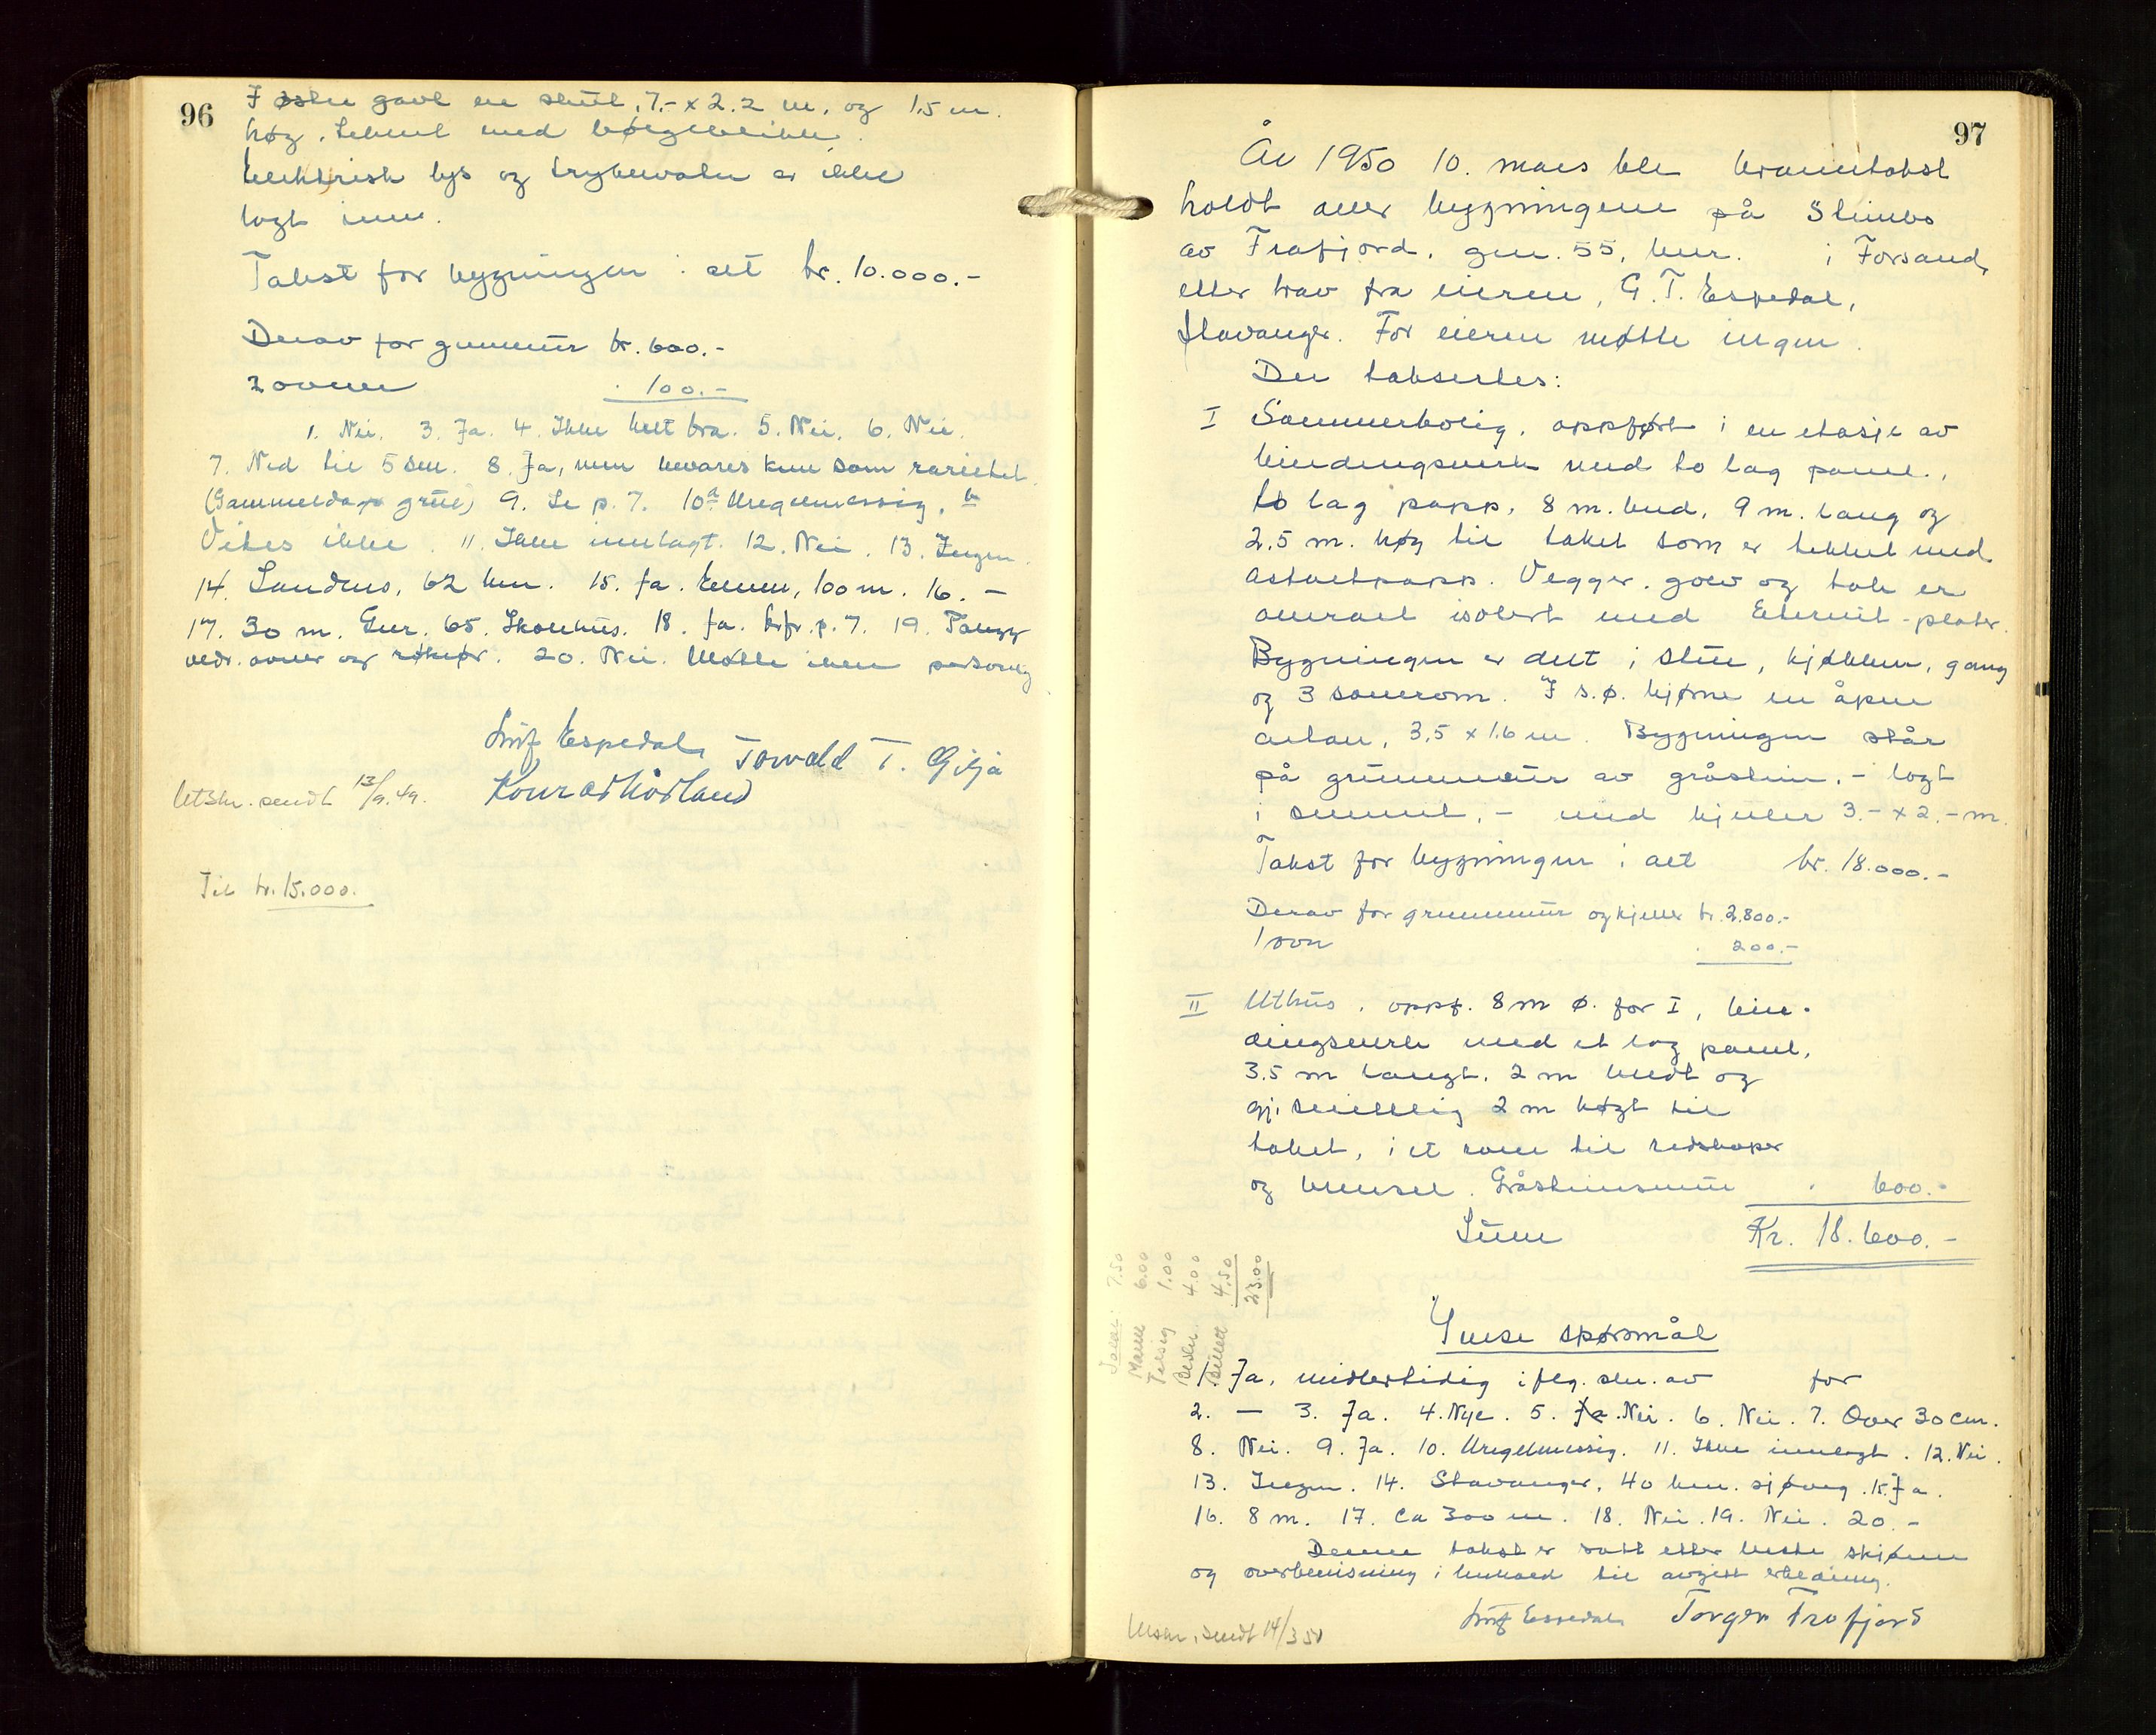 96
I østre gavl en skut, 7.- x 2.2 m. og 1.5 m.
høg, tekket med bølgeblikk.
Elektrisk lys og trykkvatn er ikke
lagt inn.
Takst for bygningen i alt kr. 10.000.-
Derav for grunnmur kr. 600.-
2 ovner " 100.-
1. Nei. 3. Ja. 4. Ikke helt bra. 5. Nei. 6. Nei.
7. Ned til 5 cm. 8. Ja, men bevares kun som raritet
(Gammeldags grue) 9. Se p. 7. 10a Uregelmessig. b
Vites ikke. 11. Ikke innlagt. 12. Nei. 13. Ingen.
14. Sandnes, 62 km. 15. Ja. Elven, 100 m. 16. -
17. 30 m. Gnr. 65. Skolehus. 18. Ja. Jfr. p. 7. 19. Pålegg
vedr. ovner og røkrør. 20. Nei. Møtte ikke personlig
Espedal Torvald T. Gilja
Konrad Mådland
Utskr. sendt 13/9.49.
Til kr. 15.000.
97
År 1950 10. mars ble branntakst
holdt over bygningene på Steinbs
av Frafjord, gnr. 55, bnr. i Forsand,
etter krav fra eieren, G. T. Espedal,
Stavanger. For eieren møtte ingen.
Der takseres:
I Sommerbolig, oppført i en etasje av
bindingsverk med to lag panel,
to lag papp, 8 m. bred, 9 m. lang og
2.5 m. høg til taket som er tekket med
asfaltpapp. Vegger, golv og tak er
overalt isolert med Eternit-plater.
Bygningen er delt i stue, kjøkken, gang
og 3 soverom. I s.ø. hjørne en åpen
altan, 3,5 x 1.6 m. Bygningen står
på grunnmur av gråstein, - lagt
i sement, - med kjeller 3.- x 2.- m.
Takst for bygningen i alt kr. 18.000.-
Derav for grunnmur og kjeller kr. 2.800.-
1 ovn " 200.-
II Uthus, oppf. 8 m ø. for I, bin-
dingsverk med et lag panel,
3.5 m langt, 2 m bredt og
gj.snittlig 2 m høgt til
taket, i et rom til redskaper
og brensel. Gråsteinsmur " 600.-
Sum Kr. 18.600.-
Takst 7.50
6.00
1.00
4.00
Billett 4.50
23.00
Ymse spørsmål
1. Ja, midlertidig iflg. skr. av for
2. - 3. Ja. 4. Nye. 5. Ja. Nei. 6. Nei. 7. Over 30 cm.
8. Nei. 9. Ja. 10. Uregelmessig. 11. Ikke innlagt. 12. Nei.
13. Ingen. 14. Stavanger, 40 km. sjøveg. 15. Ja.
16. 8 m. 17. Ca 300 m. 18. Nei. 19. Nei. 20. -
Denne takst er satt etter beste skjønn
og overbevisning i henhold til avgitt erklæring.
Espedal Torger Frafjord
Utskr. sendt 14/3 50